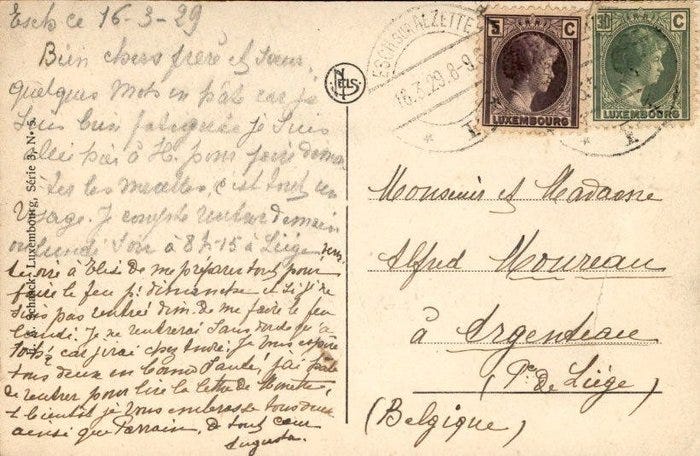 Esch ce 16-3-29
Bien chers frère et sœur.
Quelques mots en hâte car je
suis bien fatiguée je suis
allé à pour faire
les c'est tout un
visage. Je compte rentrer demain
ou lundi soir à 8h-15 à Liège
à de me préparer tout pour
faire le feu p. dimanche et si je ne
suis pas rentrée dim. de me faire le feu
lundi. Je ne rentrerai sans
car j'irai chez André. Je vous espère
tous deux en bonne santé, j'ai hâte
de rentrer pour lire la lettre de
à bientôt je vous embrasse tous deux
ainsi que Parrain, de tout cœur
Augusta.
J. Schaack, Luxembourg, Série 3, N° 5.
NELS
ESCH-SUR-ALZETTE
16.3.29.8-9
5 C
LUXEMBOURG
30 C
LUXEMBOURG
Monsieur et Madame
Alfred Moureau
à Argenteau
(Pce de Liége)
(Belgique)